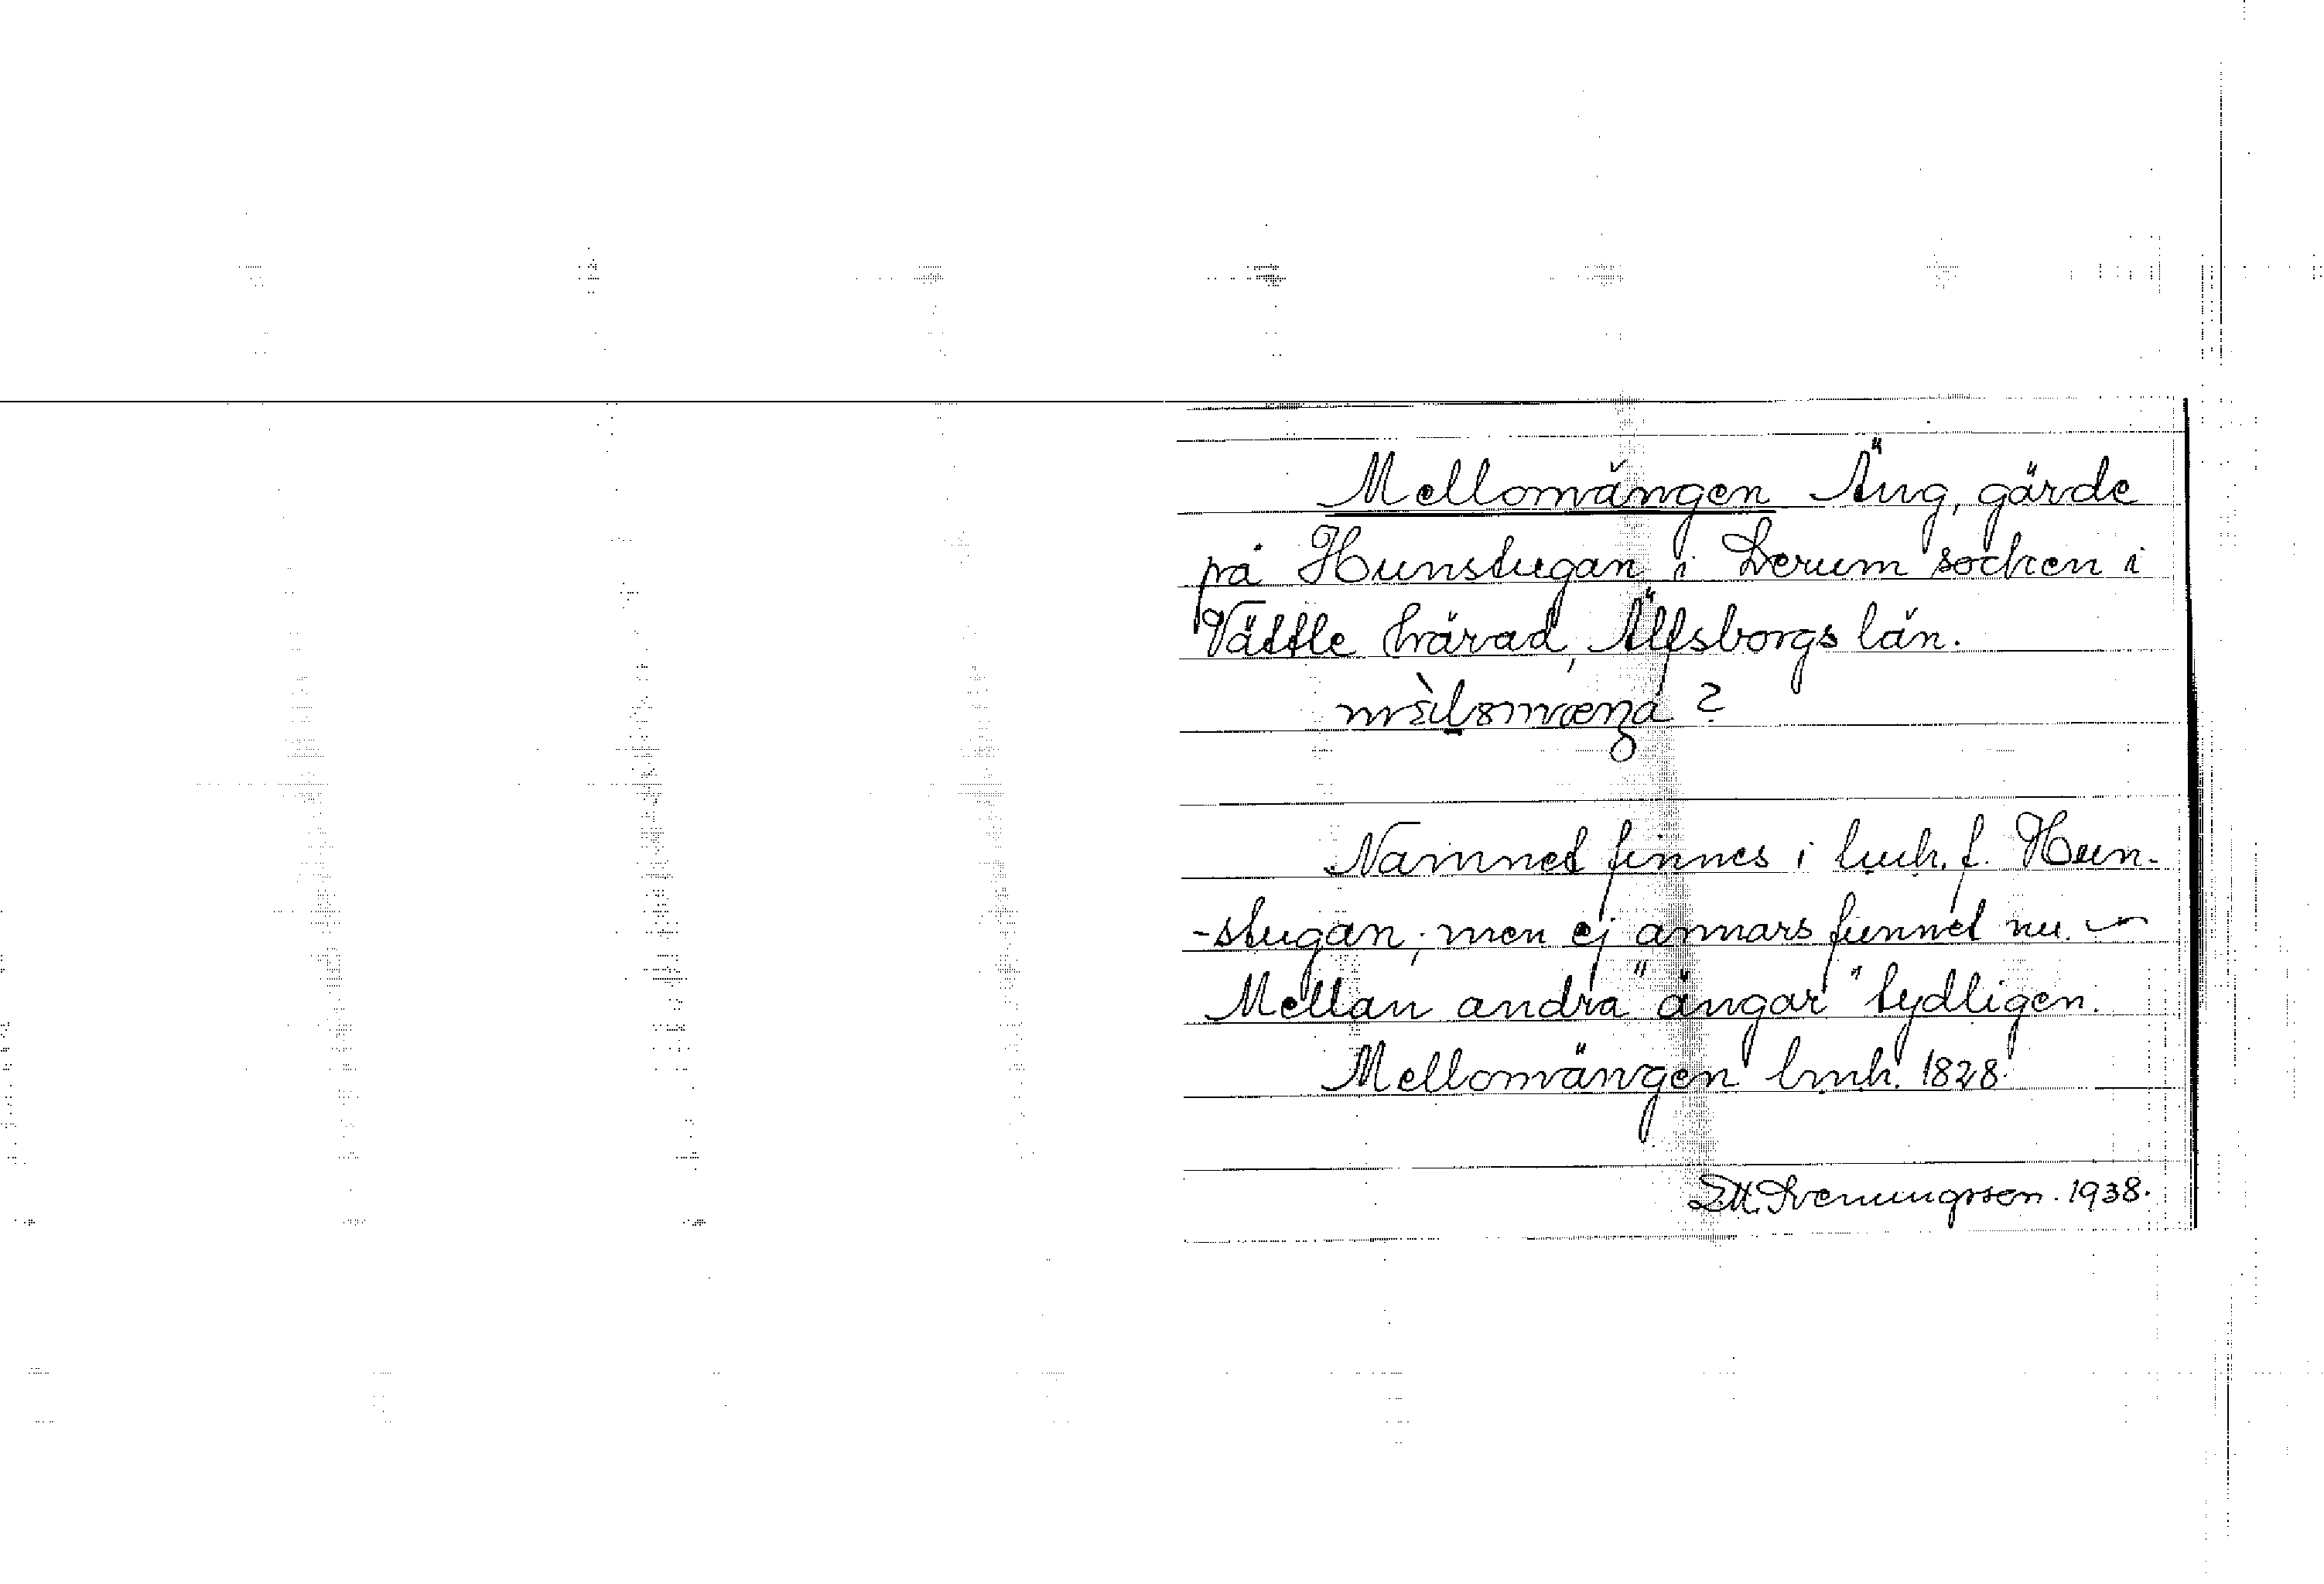 Mellomängen Äng, gärde
på Hunstugan i Lerum socken i
Vättle härad, Älfsborgs län.
?
Namnet finnes i lmh. f. Hun-
-stugan; men ej annars funnet nu. –
Mellan andra "ängar" tydligen.
Mellomängen lmh. 1828.
Sveningsson. 1938.